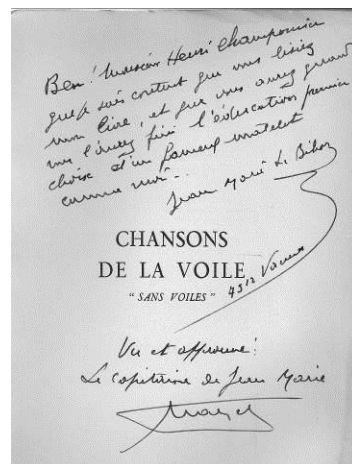 Ben! Monsieur Henri Champounier
que je suis content que vous lisiez
mon livre, et que vous aurez quand
vous l'aurez fini l'éducation première
choix d'un fameux matelot
comme moi...
Jean Marie Le Bihor
CHANSONS
DE LA VOILE
" SANS VOILES "
Vu et approuvé!
Le capitaine de Jean Marie